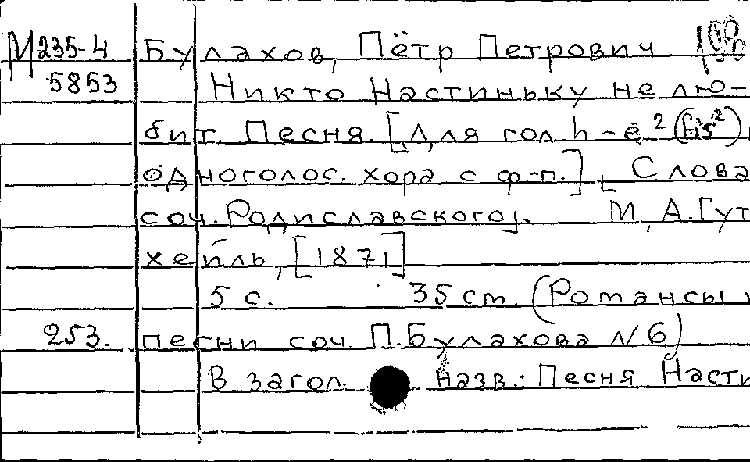 М 235-4 Булахов, Пётр Петрович
5853 Никто Настиньку не лю-
бит. Песня. [Для гол. h-e² (fis²)
одноголос. хора с ф-п.] [Слова
соч. Родиславского]. М, А. Гут
хейль, [1871]
5 с. 35 cm (Романсы
253. песни соч. П. Булахова № 6)
В загол. назв.: Песня Насти